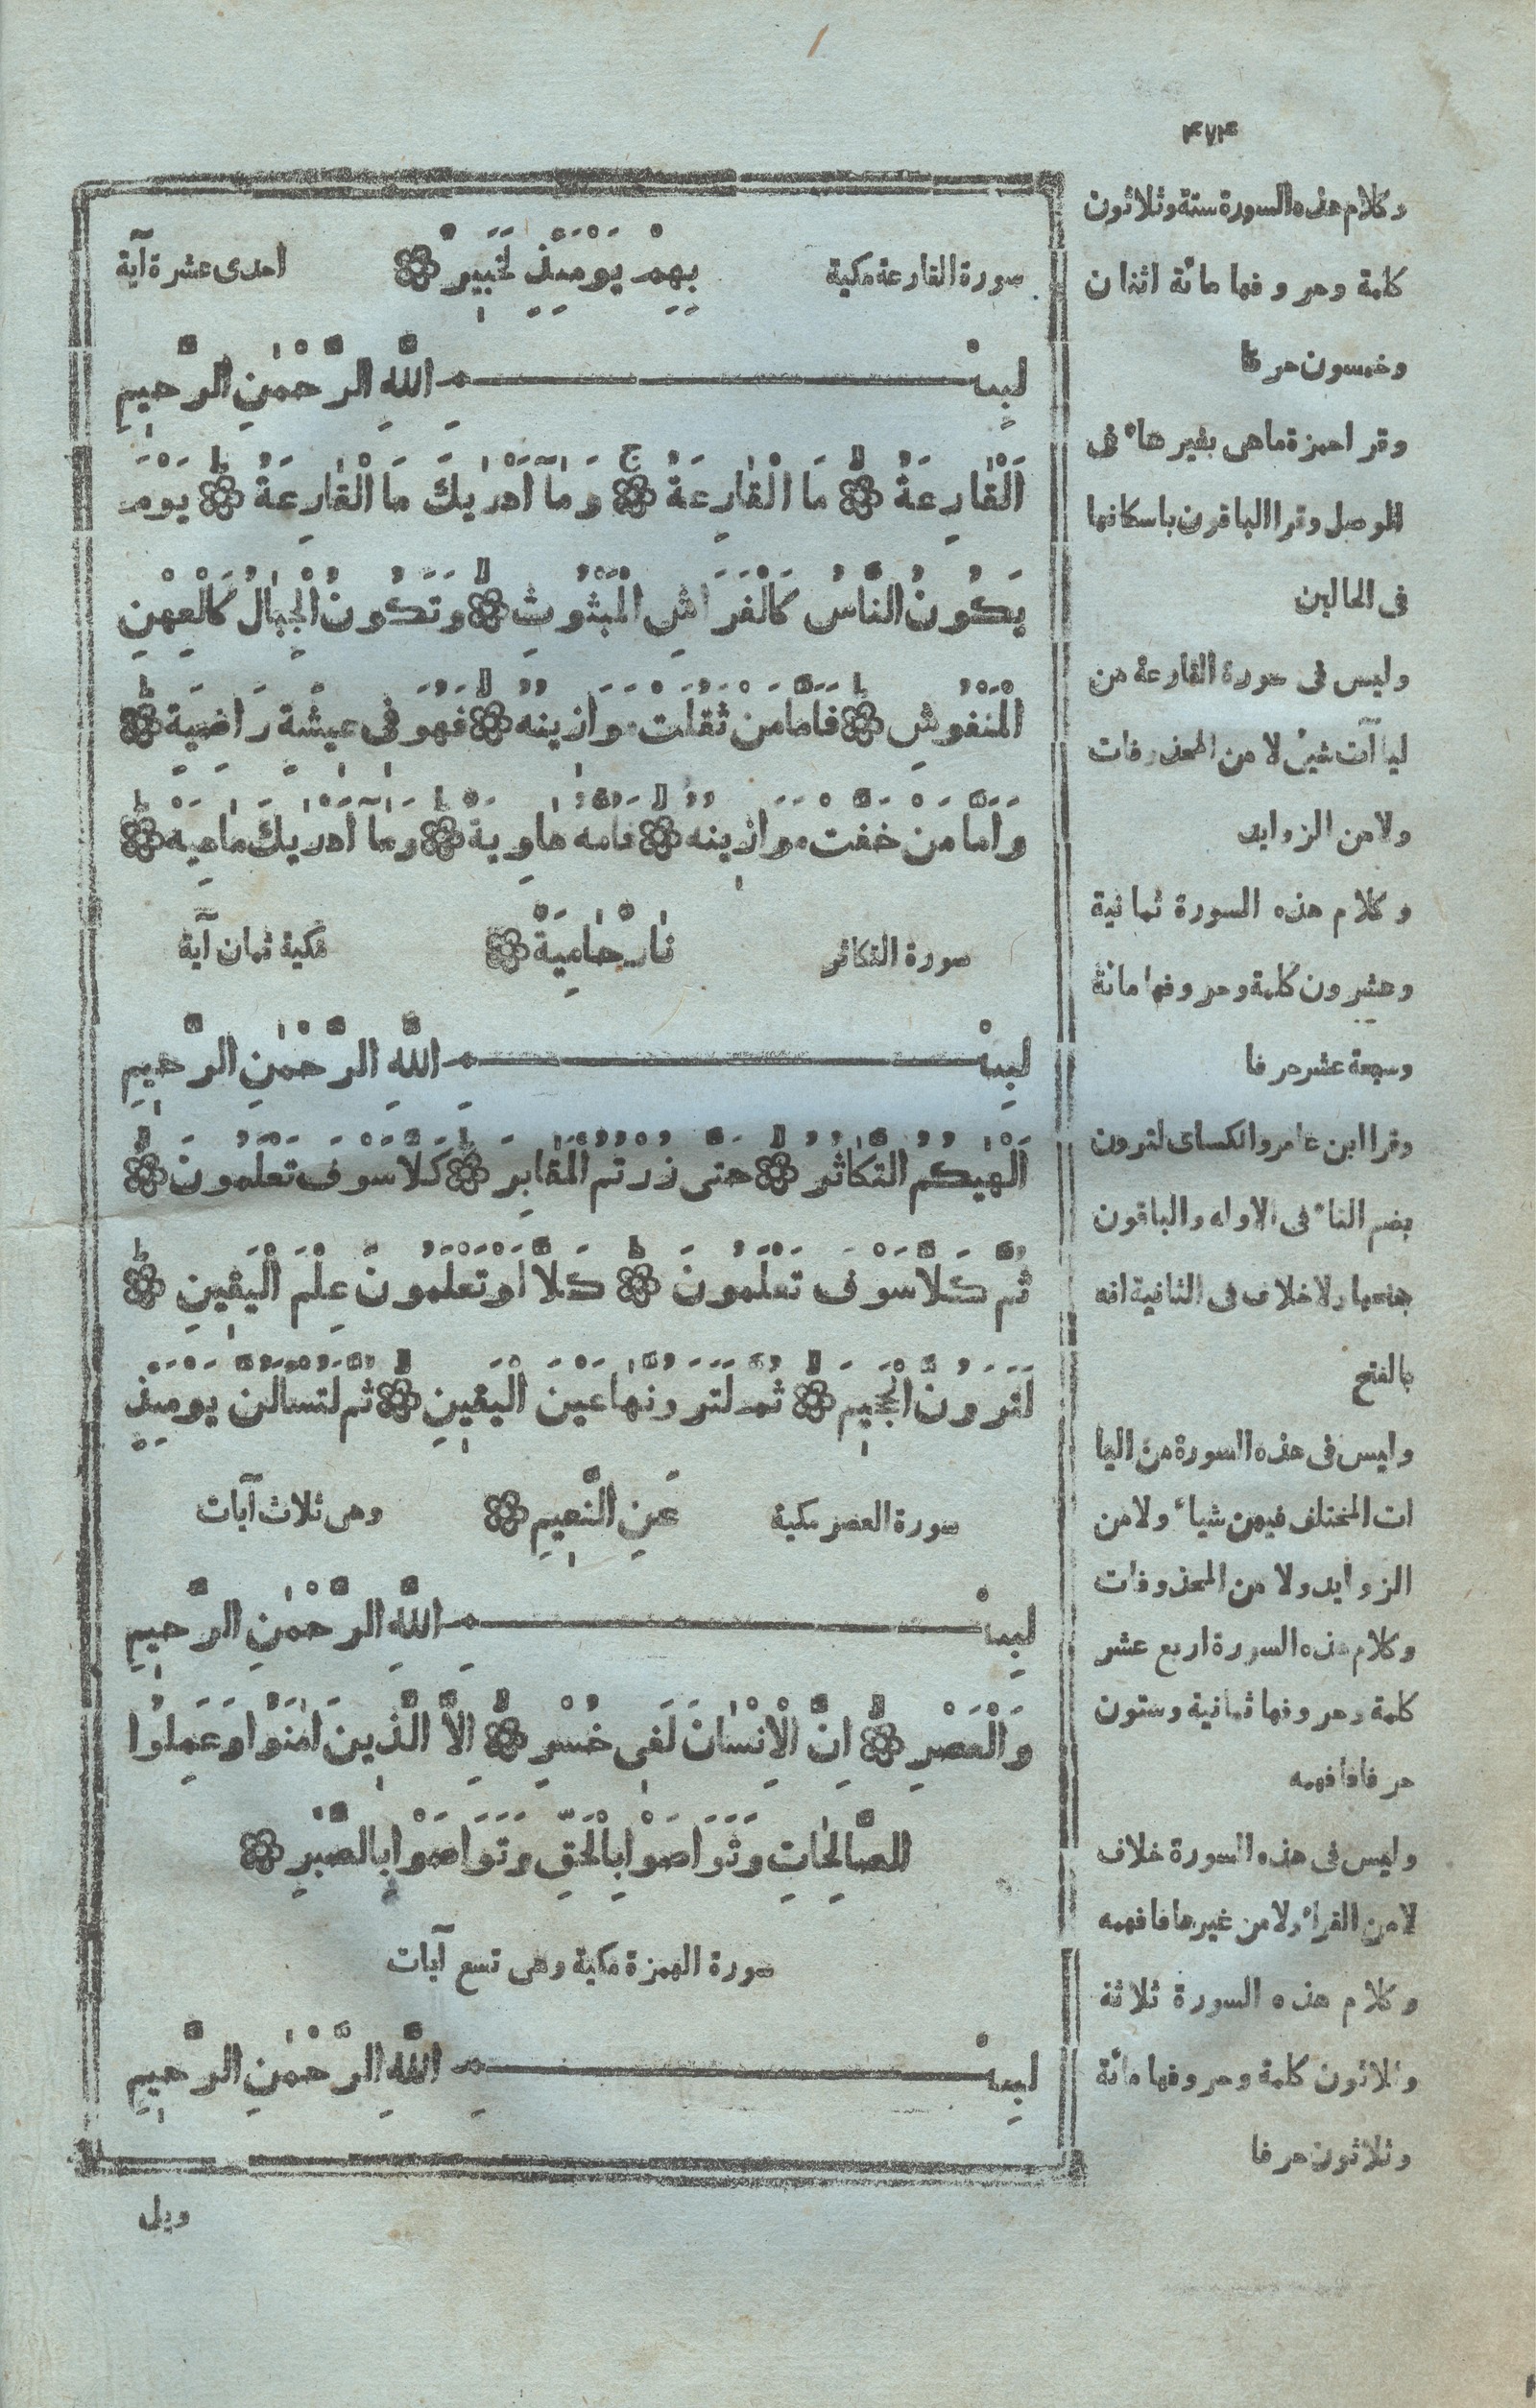 ۴۷۴
سورة القارعة مكية بِهِمْ يَوْمَئِذٍ لَخَبِيرٌ احدى عشرة آية
بِسْمِ اللّٰهِ الرَّحْمٰنِ الرَّحِيمِ
اَلْقَارِعَةُ مَا الْقَارِعَةُ وَمَآ اَدْرٰيكَ مَا الْقَارِعَةُ يَوْمَ
يَكُونُ النَّاسُ كَالْفَرَاشِ الْمَبْثُوثِ وَتَكُونُ الْجِبَالُ كَالْعِهْنِ
الْمَنْفُوشِ فَاَمَّا مَنْ ثَقُلَتْ مَوَازِينُهُ فَهُوَ فِى عِيشَةٍ رَاضِيَةٍ
وَاَمَّا مَنْ خَفَّتْ مَوَازِينُهُ فَاُمُّهُ هَاوِيَةٌ وَمَآ اَدْرٰيكَ مَاهِيَهْ
سورة التكاثر نَارٌ حَامِيَةٌ مكية ثمان آية
بِسْمِ اللّٰهِ الرَّحْمٰنِ الرَّحِيمِ
اَلْهٰيكُمُ التَّكَاثُرُ حَتّٰى زُرْتُمُ الْمَقَابِرَ كَلَّا سَوْفَ تَعْلَمُونَ
ثُمَّ كَلَّا سَوْفَ تَعْلَمُونَ كَلَّا لَوْ تَعْلَمُونَ عِلْمَ الْيَقِينِ
لَتَرَوُنَّ الْجَحِيمَ ثُمَّ لَتَرَوُنَّهَا عَيْنَ الْيَقِينِ ثُمَّ لَتُسْاَلُنَّ يَوْمَئِذٍ
سورة العصر مكية عَنِ النَّعِيمِ وهى ثلاث آيات
بِسْمِ اللّٰهِ الرَّحْمٰنِ الرَّحِيمِ
وَالْعَصْرِ اِنَّ الْاِنْسَانَ لَفِى خُسْرٍ اِلَّا الَّذِينَ اٰمَنُوا وَعَمِلُوا
الصَّالِحَاتِ وَتَوَاصَوْا بِالْحَقِّ وَتَوَاصَوْا بِالصَّبْرِ
سورة الهمزة مكية وهى تسع آيات
بِسْمِ اللّٰهِ الرَّحْمٰنِ الرَّحِيمِ
ويل
وكلام هذه السورة ستة وثلاثون
كلمة وحروفها مائة اثنان
وخمسون حرفا
وقرا حمزة ماهى بغير هاء فى
الوصل وقرا الباقون باسكانها
فى الحالين
وليس فى سورة القارعة من
ليا آت شئ لا من المحذوفات
ولا من الزوايد
وكلام هذه السورة ثمانية
وعشرون كلمة وحروفها مائة
وسبعة عشر حرفا
وقرا ابن عامر والكساى لترون
بضم التاء فى الاوله والباقون
بفتحها ولا خلاف فى الثانية انه
بالفتح
وليس فى هذه السورة من اليا
ات المختلف فيهن شياء ولا من
الزوايد ولا من المحذوفات
وكلام هذه السورة اربع عشر
كلمة وحروفها ثمانية وستون
حرفا فافهمه
وليس فى هذه السورة خلاف
لا من القراء ولا من غيرها فافهمه
وكلام هذه السورة ثلاثة
وثلاثون كلمة وحروفها مائة
وثلاثون حرفا